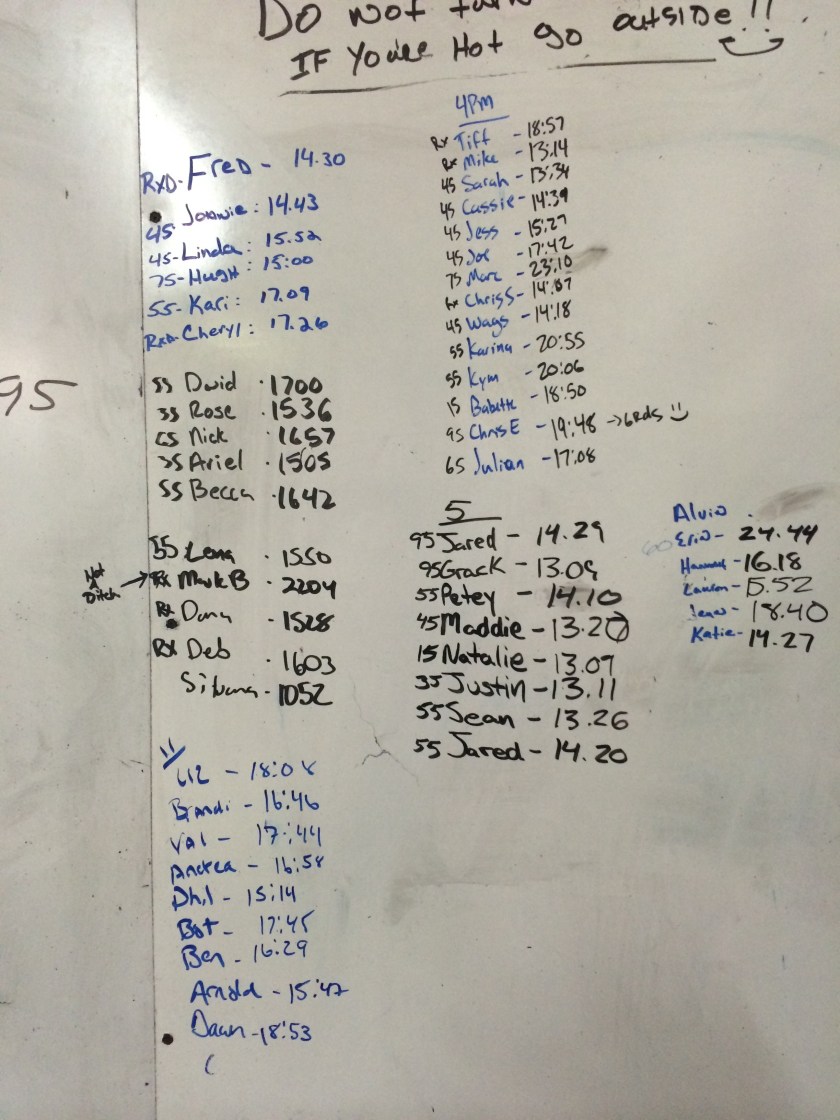 Do Not turn
IF You're Hot go outside!!
95
RxD- Fred - 14.30
45 Joannie: 14.43
45-Linda: 15.52
75-Hugh: 15:00
55-Kari: 17.09
RxD-Cheryl: 17.26
55 David 1700
35 Rose 1536
Nick 1657
35 Ariel 1505
55 Becca 1642
35 Lena 1550
Not Ditch → Rx Mark B - 2204
Rx Dana - 1528
Rx Deb 1603
1052
11
Liz - 18:08
Brandi - 16:46
Val - 17:44
Andrea - 16:58
Phil - 15:14
17:45
Ben - 16:29
Arnold - 15:47
Dawn - 18:53
4PM
Rx Tiff - 18:57
Rx Mike - 13:14
45 Sarah - 13:34
45 Cassie - 14:39
45 Jess - 15:27
45 Joe - 17:42
75 Marc - 23:10
Rx Chris S - 14:07
45 Wags - 14:18
55 Karina - 20:55
55 Kym - 20:06
15 Babette - 18:50
95 Chris E - 19:48 → 6 Rds
65 Julian - 17:08
5
95 Jared - 14.29
95 Grack - 13.09
55 Petey - 14.10
45 Maddie - 13.20
15 Natalie - 13.09
35 Justin - 13.11
55 Sean - 13.26
55 Jared - 14.20
Alvin
Erin - 24.44
16.18
5.52
18.40
Katie - 14.27